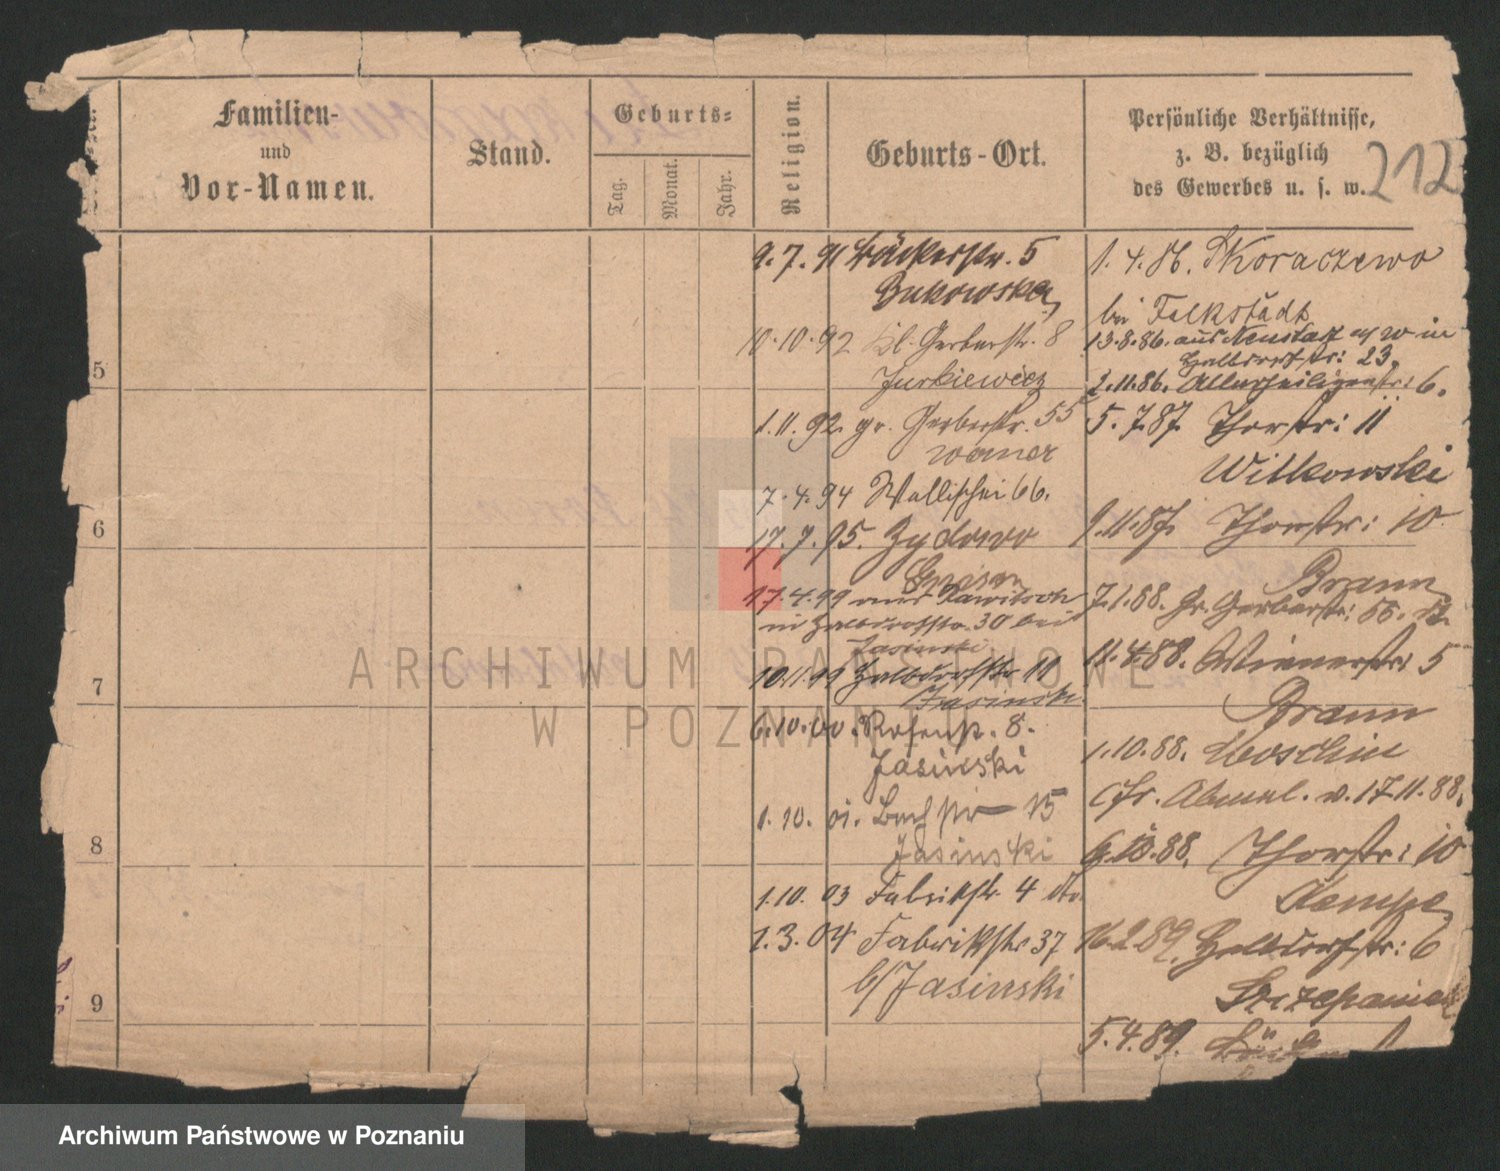 Nr.
Familien-
und
Vor-Namen.
Stand.
Geburts-
Tag.
Monat.
Jahr.
Religion.
Geburts-Ort.
Persönliche Verhältnisse,
z. B. bezüglich
des Gewerbes u. s. w.
212
5
6
7
8
9
9.7.91 Bäckerstr. 5
Bukowska
10.10.92 kl. Gerberstr. 8
Jurkiewicz
1.11.92 gr. Gerberstr. 55
7.4.94 Wallischei 66.
17.7.95. Zydowo
Gnesen
17.4.99 aus Rawitsch
in Halbdorfstr. 30 bei
Jasinski
10.11.99 Halbdorfstr 11
Jasinski
6.10.00. Rosenstr. 8.
Jasinski
1.10.01. Bachstr 15
Jasinski
1.10.03 Fabrikstr. 4 dto.
1.3.04 Fabrikstr 37
b/Jasinski
1.4.86. Skoraczewo
bei Falkstädt
13.8.86. aus Neustadt a/W in
Halbdorfstr: 23.
2.11.86. Allerheiligenstr: 6.
5.7.87 Thorstr: 11
Witkowski
9.11.87. Thorstr: 10
Brann
7.1.88. Gr. Gerberstr: 55.
11.4.88. Wienerstr: 5
Brann
1.10.88. Moschin
cfr. Abmel. v. 17.11.88.
9.10.88. Thorstr: 10
Kempe
16.2.89. Halbdorfstr: 6
Szczepaniak
5.4.89.
ARCHIWUM PAŃSTWOWE
W POZNANIU
Archiwum Państwowe w Poznaniu